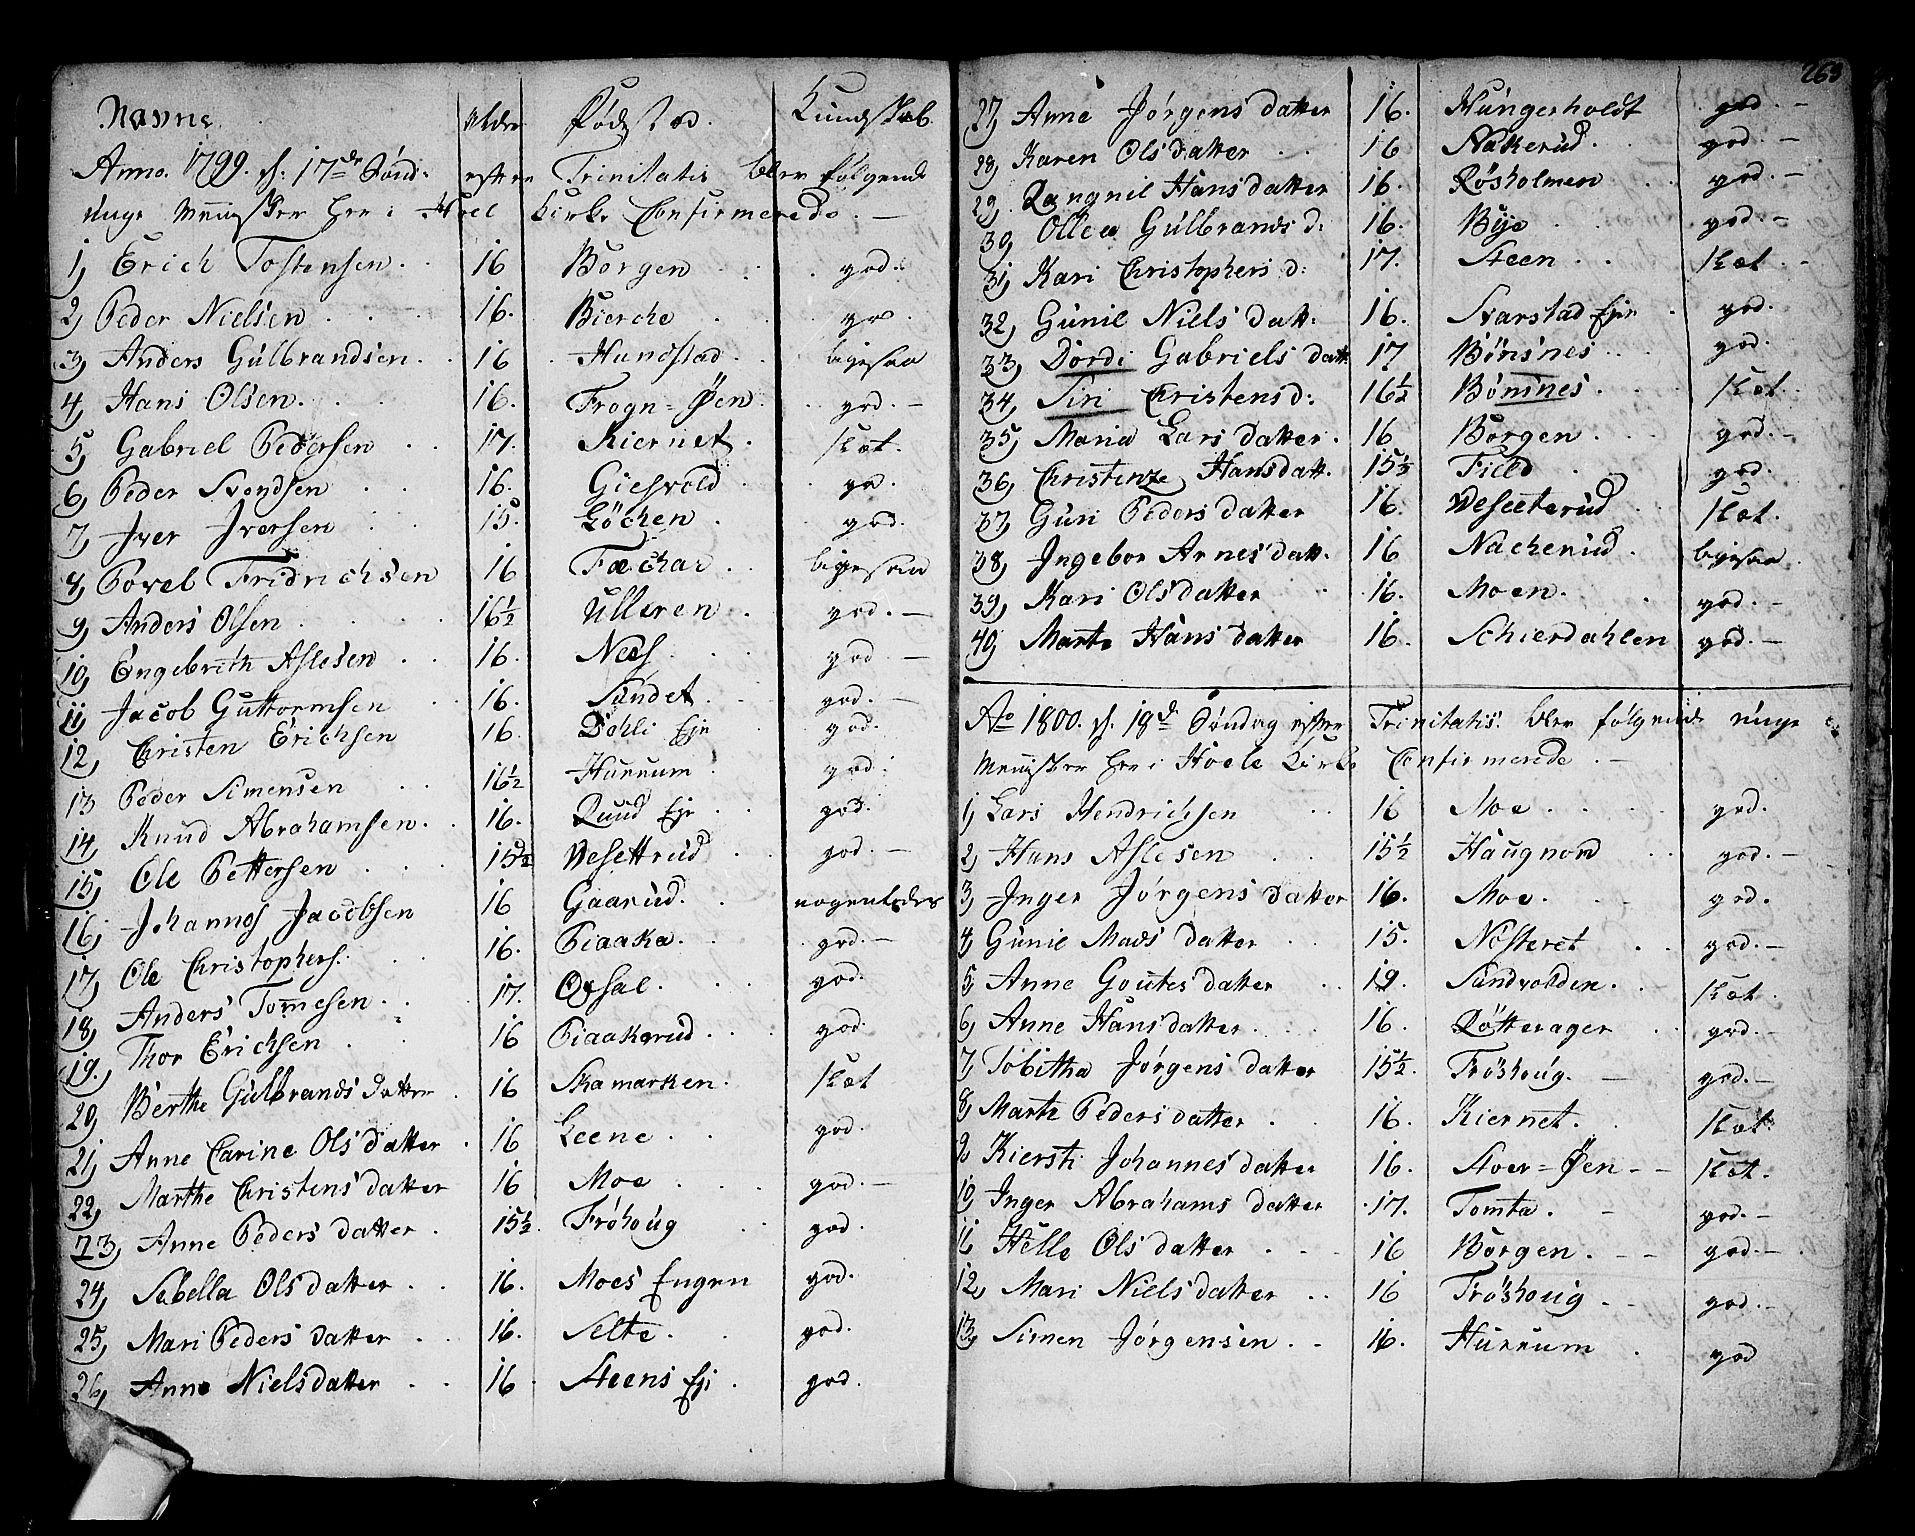 Navne. Alder Fødested. Kundskab.
Anno. 1799. d. 17de Sønd: efter Trinitatis blev følgende
unge Mennisker her i Hoel Kirke Confirmerede. —
1, Erich Tostensen. 16 Borgen god.
2, Peder Nielsen 16. Bierche god
3, Anders Gulbrandsen. 16 Hundstad. ligesaa
4, Hans Olsen. 16. Frogn-Øen. god. —
5, Gabriel Pedersen 17. Kiernet. slæt.
6, Peder Svendsen 16. Giesvold god.
7, Iver Iversen 15. Løchen god.
8, Povel Fridrichsen 16 Fæchar ligesaa
9, Anders Olsen 16½ Ulleren god. —
10, Engebrith Aslesen 16. Nees god —
11, Jacob Guttormsen 16. Sundet. god. —
12, Christen Erichsen 16. Dohli Eje god.
13 Peder Simensen 16½ Hurrum god.
14, Knud Abrahamsen. 16. Ruud Eje god.
15, Ole Pettersen 15½ Vesettrud god. —
16, Johannes Jacobsen 16 Gaarud. nogenledes
17, Ole Christophers. 16. Piaaka. god. —
18, Anders Tomesen. 17. Opsal. god.
19. Thor Erichsen 16 Piaakerud. god.
20, Berthe Gulbrands datter 16 Skamarken. slæt
21, Anne Carine Olsdatter 16 Leene. god.
22, Marthe Christens datter 16 Moe god. —
23, Anne Peders datter. 15½. Frøhoug god.
24, Sebella Olsdatter 16. Moes Engen god.
25, Mari Peders datter 16. Selte. god.
26, Anne Nielsdatter 16 Steens Eje god.
263
27, Anne Jørgens datter 16. Hungerholdt god. —
28, Karen Olsdatter 16 Nakerud. god. —
29, Rangnil Hansdatter 16. Røsholmen god. —
30, Ollea Gulbrands d: 16. Bye god. —
31, Kari Christophers d: 17. Steen slæt. —
32, Gunil Niels datt. 16. Svarstad Eje god.
33, Dordi Gabriels datt 17 Bønsnes god.
34, Siri Christensd: 16½ Bønsnes slæt.
35, Maria Lars datter. 16 Borgen. god. —
36, Christenze Hansdatt. 15½ Field god.
37, Guri Peders datter 16. Veseeterud slæt.
38, Ingebor Arnesdatt. 16 Nackerud. ligesaa
39, Kari Olsdatter 16. Moen. god. —
40, Marte Hans datter 16. Schierdahlen god. —
Ao 1800. d. 18de Søndag efter Trinitatis blev følgende unge
Mennisker her i Hoele Kirke Confirmerede. —
1, Lars Hendrichsen 16 Moe god.
2, Hans Aslesen 15½ Haugnord god. —
3, Inger Jørgens datter 16. Moe. god.
4, Gunil Mads datter 15. Nøsteret god. —
5, Anne Goutes datter 19. Sundvolden. slæt.
6, Anne Hansdatter. 16. Røtterager god. —
7, Tobitha Jørgens datter 15½. Frøshoug. — god. —
8, Marte Pedersdatter 16. Kiernet. slæt.
9 Kiersti Johannes datter 16. Stor-Øen — slæt.
10, Inger Abrahams datter 17. Tomta. god. —
11, Helle Ols datter 16 Borgen. god. —
12, Mari Nielsdatter 16 Frøshoug god. —
13, Simen Jørgensen. 16. Hurrum god